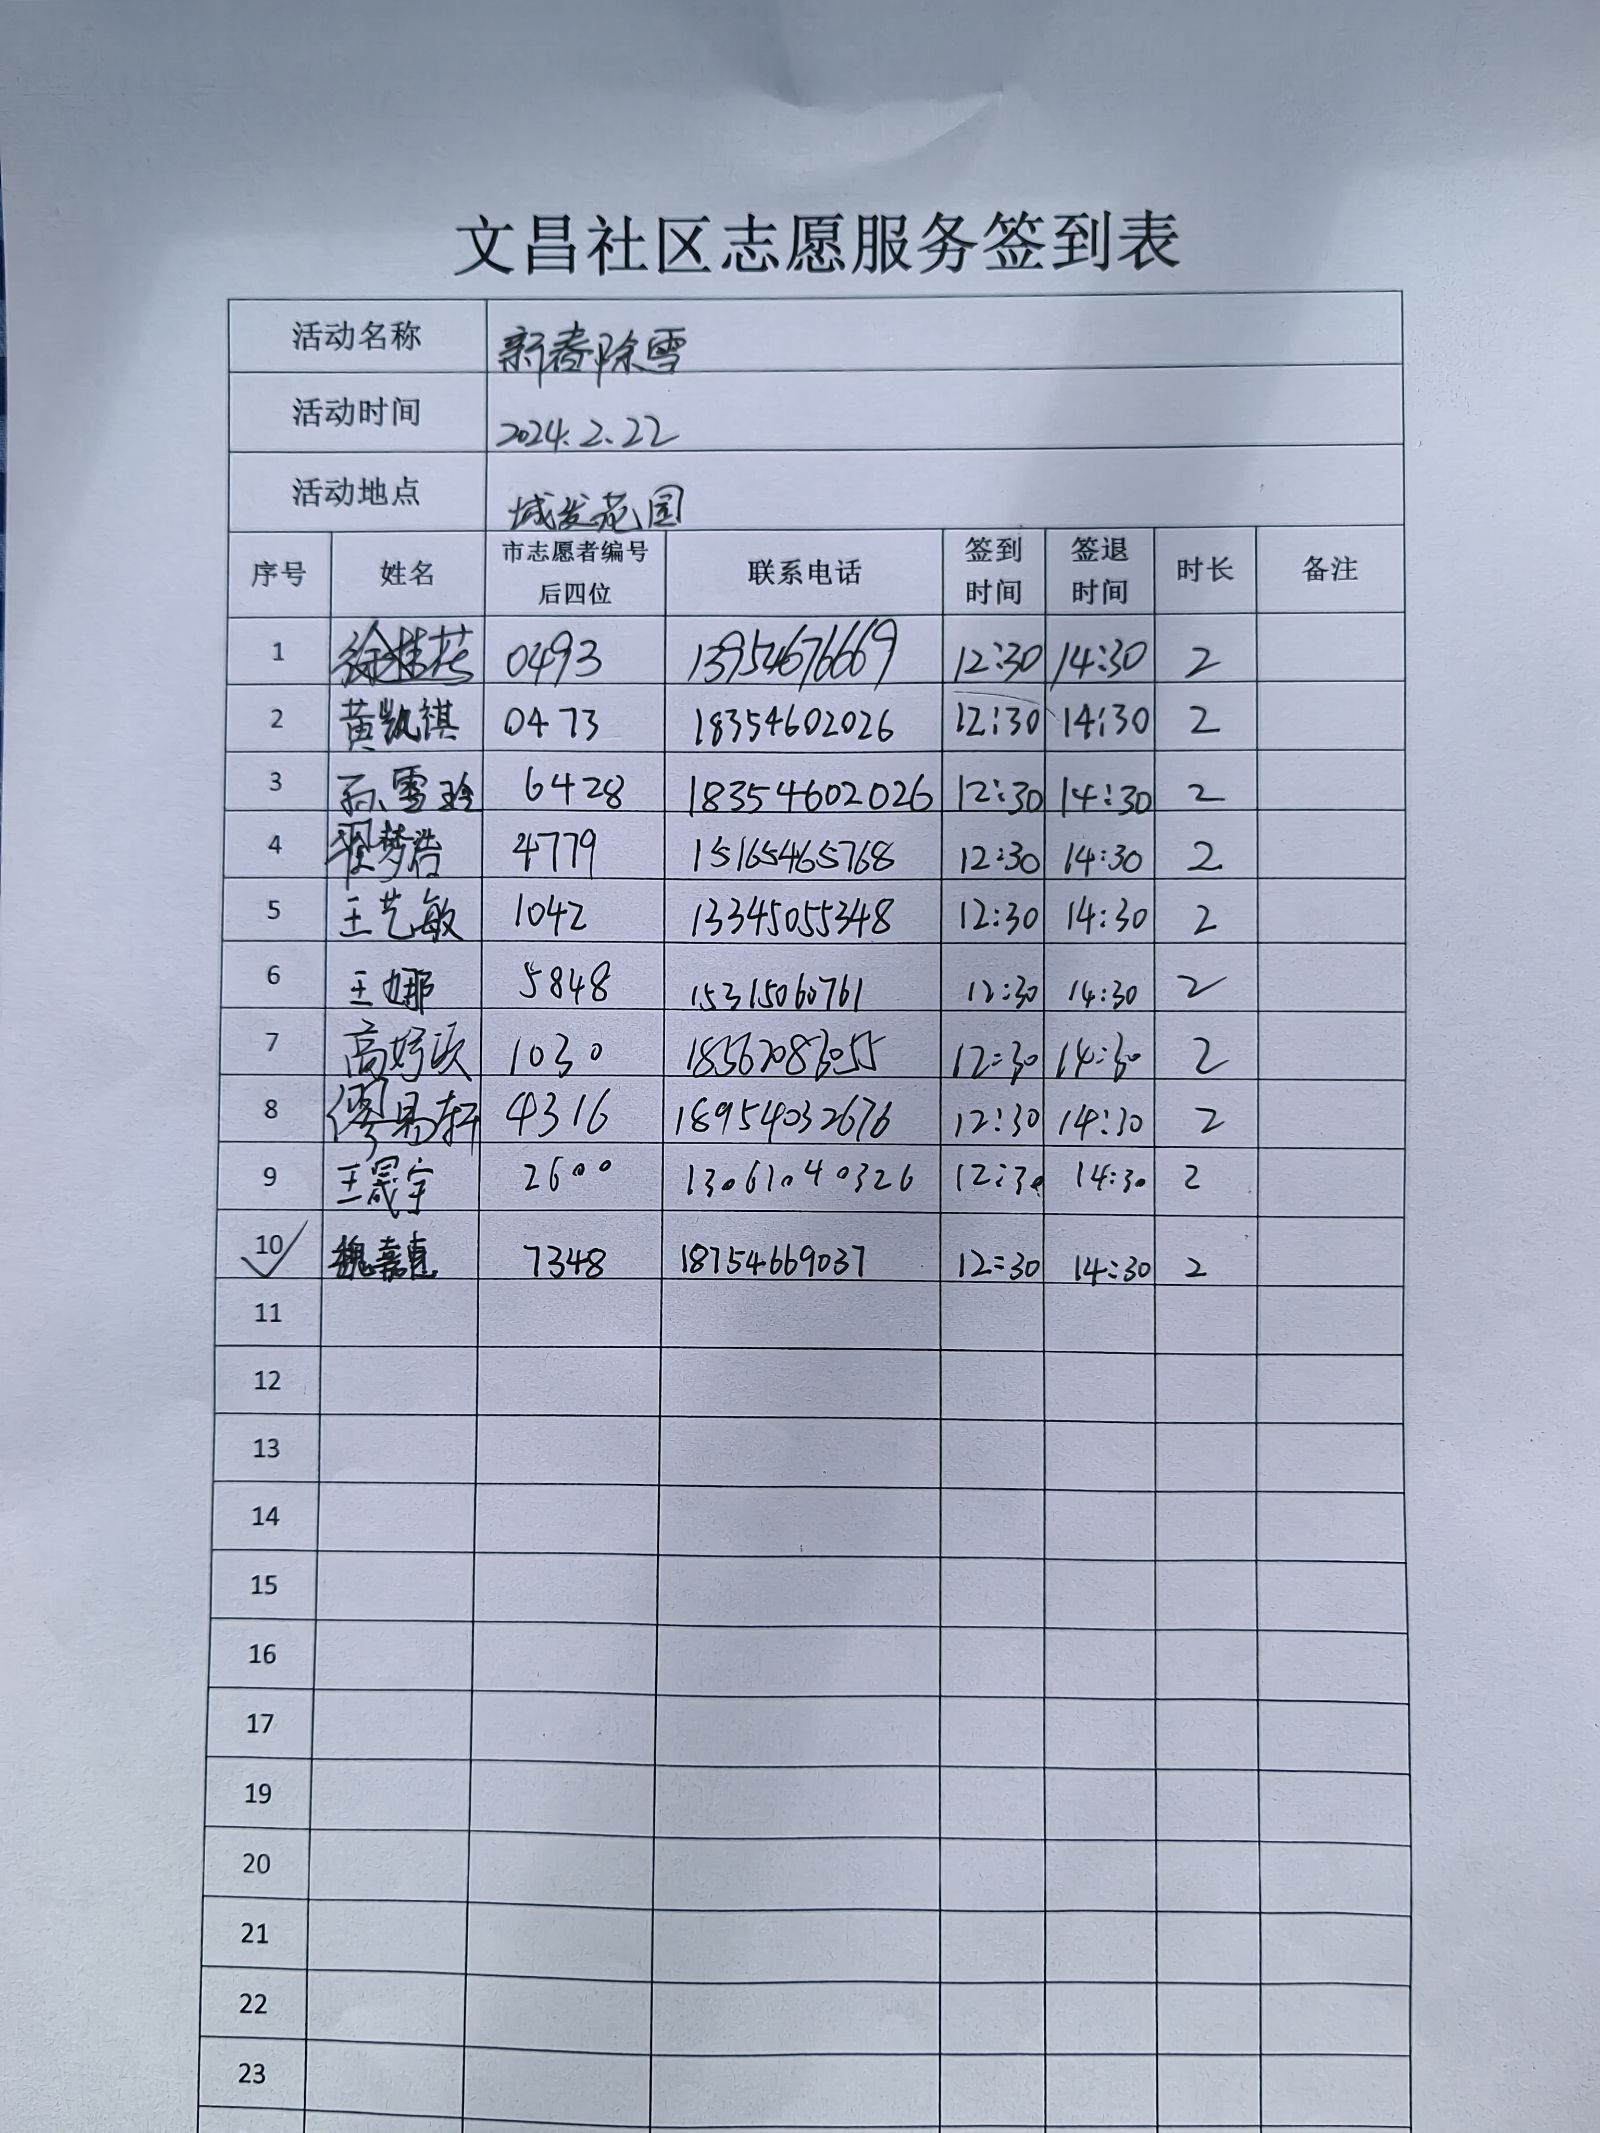 文昌社区志愿服务签到表
活动名称 新春除雪
活动时间 2024.2.22
活动地点 城发花园
序号 姓名 市志愿者编号后四位 联系电话 签到时间 签退时间 时长 备注
1 徐桂花 0493 13954676669 12:30 14:30 2
2 黄凯祺 0473 18354602026 12:30 14:30 2
3 孙雪玲 6428 18354602026 12:30 14:30 2
4 翟梦浩 4779 15165465768 12:30 14:30 2
5 王艺敏 1042 13345055348 12:30 14:30 2
6 王娜 5848 15315060761 12:30 14:30 2
7 高 1030 12:30 14:30 2
8 缪易轩 4316 18954032676 12:30 14:30 2
9 王晟宇 2600 13061040326 12:30 14:30 2
10 魏嘉惠 7348 18754669037 12:30 14:30 2
11
12
13
14
15
16
17
19
20
21
22
23